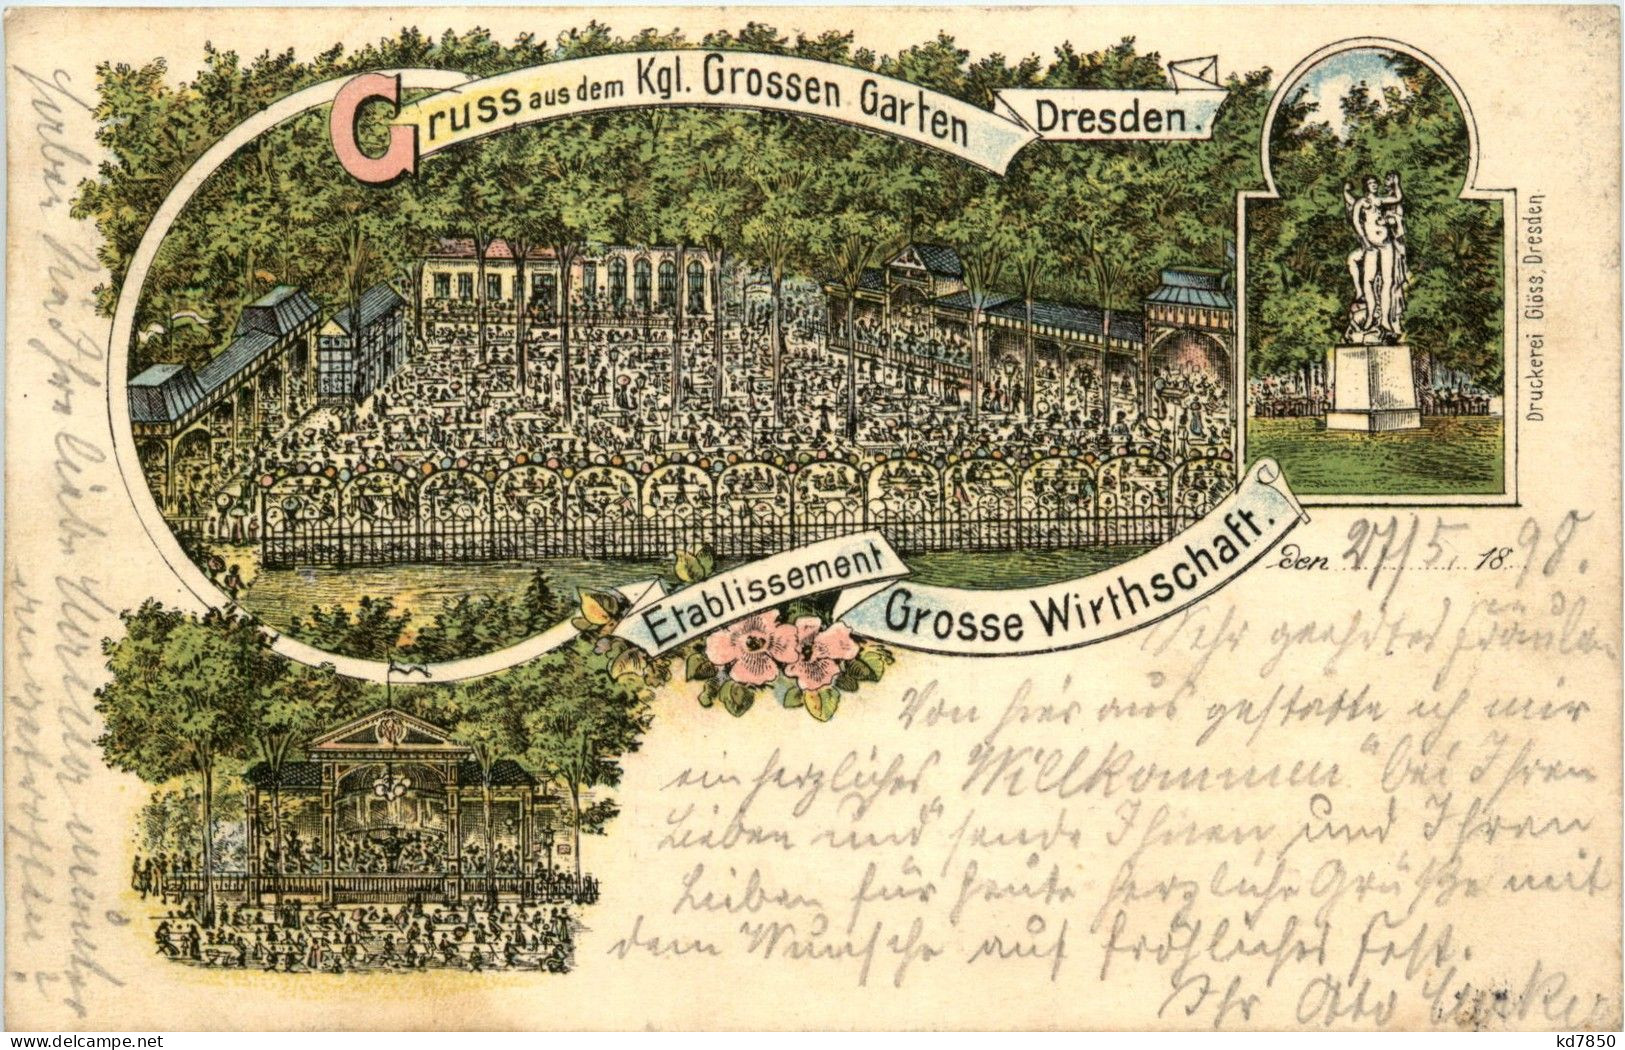 Gruss aus dem Kgl. Grossen Garten Dresden.
Etablissement Grosse Wirthschaft.
Druckerei Glöss, Dresden
den 27/5. 1898.
Sehr geehrtes Fräulein
Von hier aus gestatte ich mir
ein herzliches "Willkommen" bei Ihren
Lieben und sende Ihnen und Ihren
Lieben für heute herzliche Grüße mit
dem Wunsche auf fröhliches Fest.
Ihr Otto
kd7850